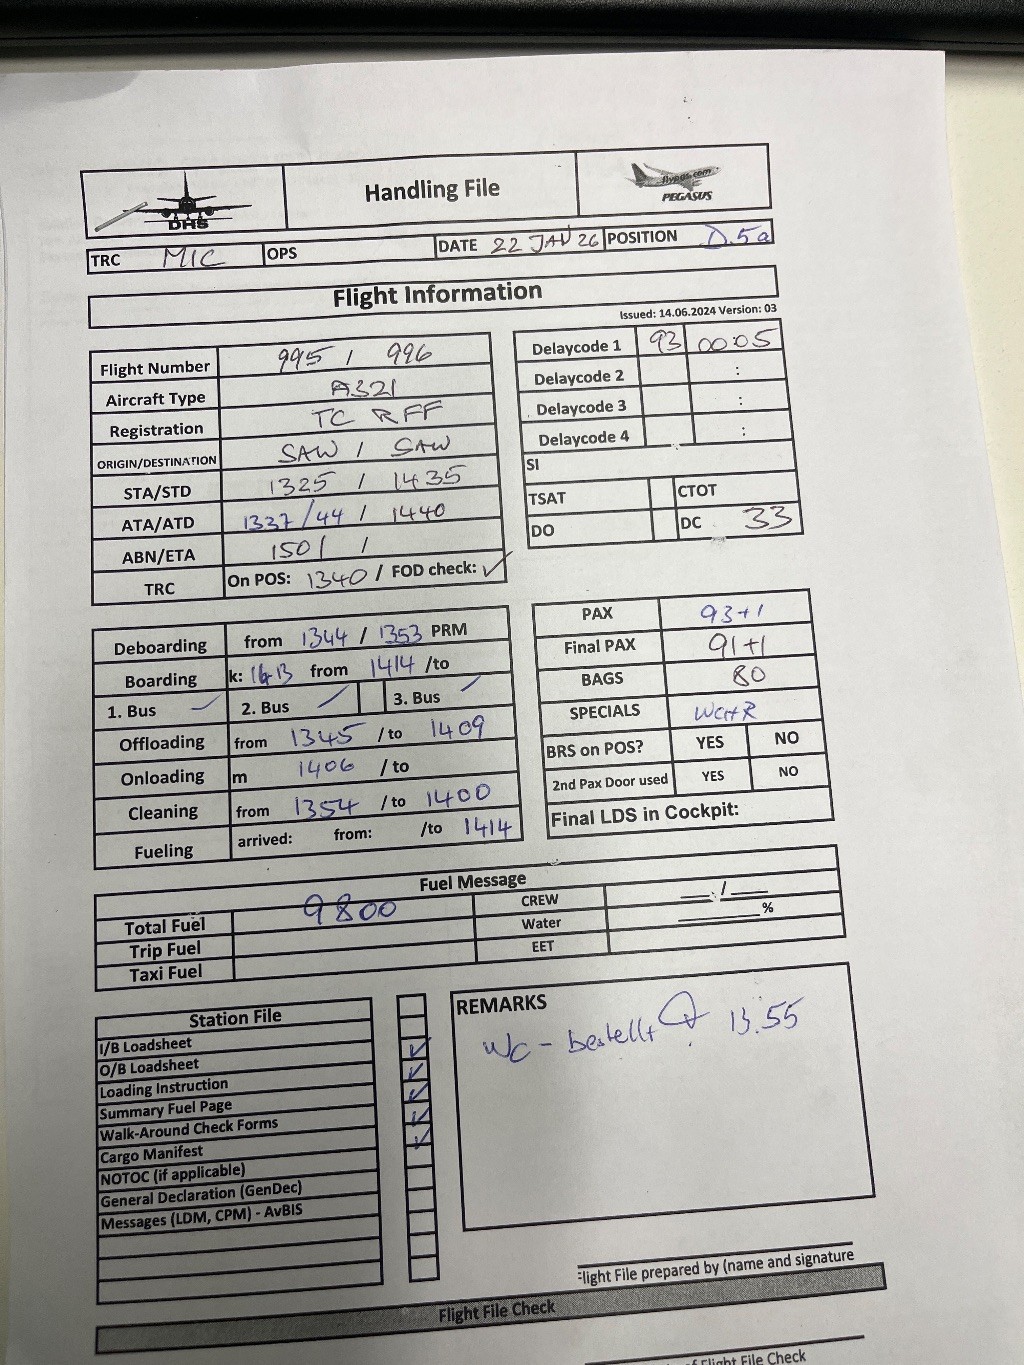 DHS
Handling File
flypgs.com
PEGASUS
TRC MIC OPS DATE 22 JAN 26 POSITION D.5a
Flight Information
Issued: 14.06.2024 Version: 03
Flight Number 995 / 996
Aircraft Type A321
Registration TC RFF
ORIGIN/DESTINATION SAW / SAW
STA/STD 1325 / 1435
ATA/ATD 1337/44 / 1440
ABN/ETA 1501 /
TRC On POS: 1340 / FOD check: ✓
Delaycode 1 93 00:05
Delaycode 2 :
Delaycode 3 :
Delaycode 4 :
SI
TSAT CTOT
DO DC 33
Deboarding from 1344 / 1353 PRM
Boarding k: from 1414 /to
1. Bus ✓ 2. Bus ✓ 3. Bus ✓
Offloading from 1345 /to 1409
Onloading m 1406 /to
Cleaning from 1354 /to 1400
Fueling arrived: from: /to 1414
PAX 93+1
Final PAX 91+1
BAGS 80
SPECIALS WCHR
BRS on POS? YES NO
2nd Pax Door used YES NO
Final LDS in Cockpit:
Fuel Message
Total Fuel 9800 CREW __:/___
Trip Fuel Water ________%
Taxi Fuel EET
Station File
I/B Loadsheet
O/B Loadsheet ✓
Loading Instruction ✓
Summary Fuel Page ✓
Walk-Around Check Forms ✓
Cargo Manifest ✓
NOTOC (if applicable)
General Declaration (GenDec)
Messages (LDM, CPM) - AvBIS
REMARKS
WC - bestellt 13.55
Flight File prepared by (name and signature
Flight File Check
of Flight File Check